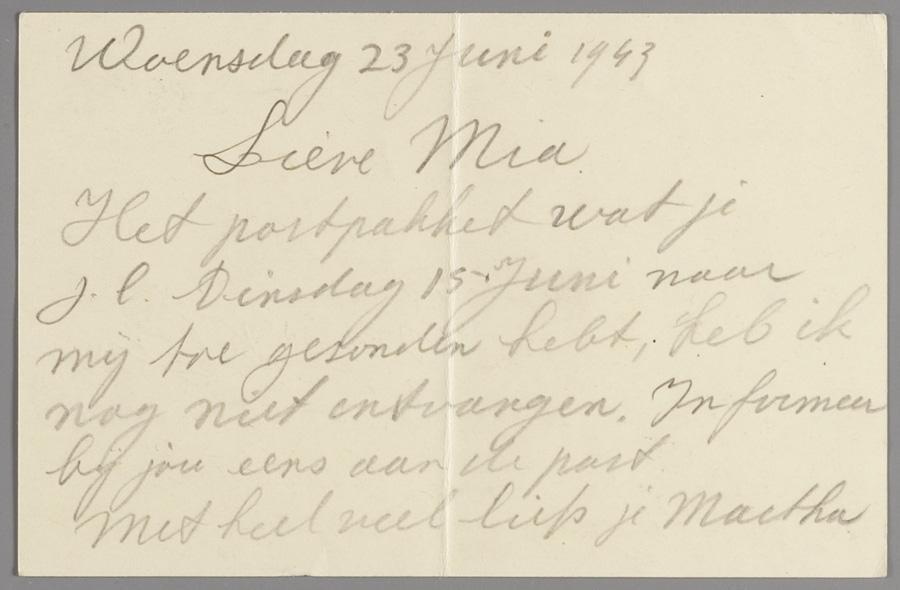 Woensdag 23 Juni 1943
Lieve Mia
Het postpakket wat je
j.l. Dinsdag 15 Juni naar
mij toe gesonden hebt, heb ik
nog niet ontvangen. Informeer
bij jou eens aan de post
Met heel veel liefs je Maetha